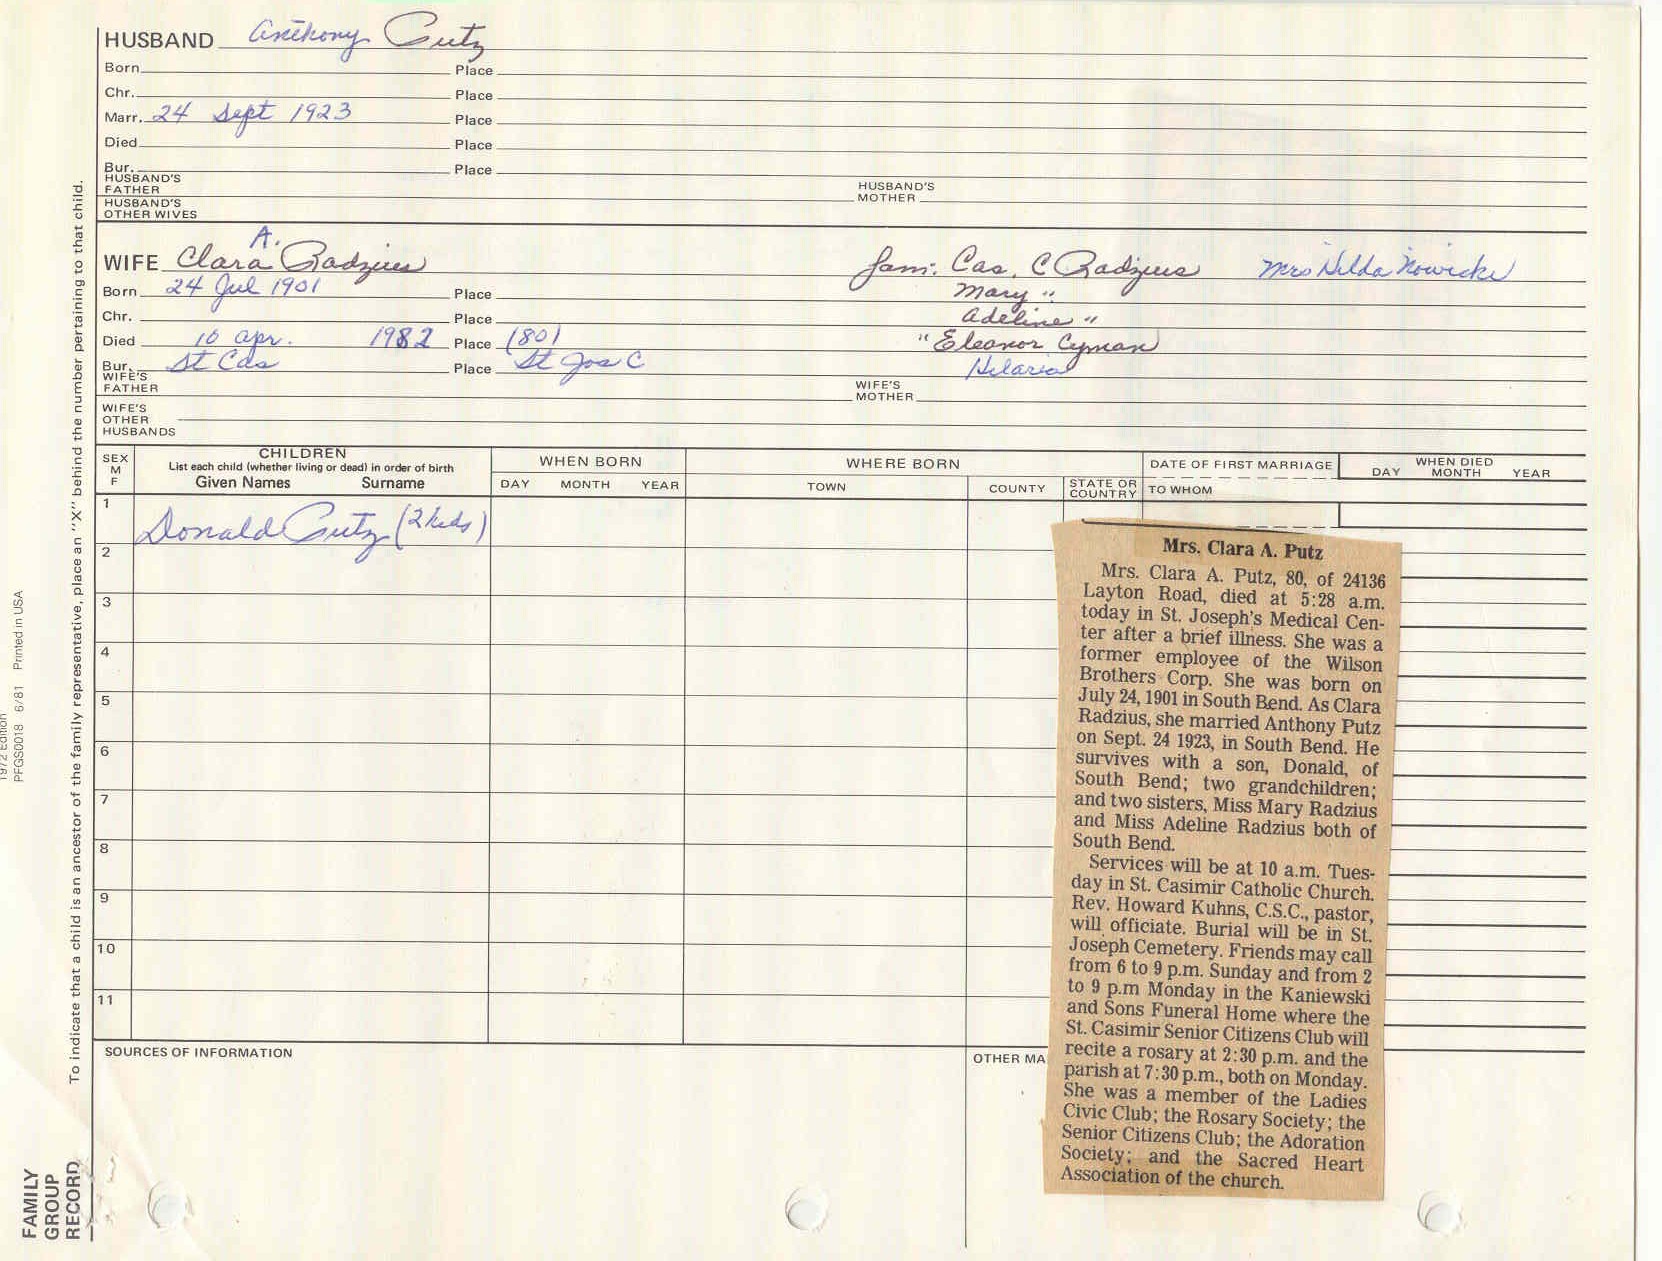 HUSBAND Anthony Putz
Born Place
Chr. Place
Marr. 24 Sept 1923 Place
Died Place
Bur. Place
HUSBAND'S FATHER HUSBAND'S MOTHER
HUSBAND'S OTHER WIVES
A.
WIFE Clara Radzius fam: Cas. C Radzius Mrs Hilda Nowicki
Born 24 Jul 1901 Place Mary "
Chr. Place Adeline "
Died 10 apr. 1982 Place (80) "Eleanor Cyman
Bur. St Cas Place St Jos C Hilaria
WIFE'S FATHER WIFE'S MOTHER
WIFE'S OTHER HUSBANDS
SEX M F
CHILDREN
List each child (whether living or dead) in order of birth
Given Names Surname
WHEN BORN
DAY MONTH YEAR
WHERE BORN
TOWN COUNTY STATE OR COUNTRY
DATE OF FIRST MARRIAGE
TO WHOM
WHEN DIED
DAY MONTH YEAR
1 Donald Putz (2 kids)
2
3
4
5
6
7
8
9
10
11
SOURCES OF INFORMATION
OTHER MA
Mrs. Clara A. Putz
Mrs. Clara A. Putz, 80, of 24136
Layton Road, died at 5:28 a.m.
today in St. Joseph's Medical Cen-
ter after a brief illness. She was a
former employee of the Wilson
Brothers Corp. She was born on
July 24, 1901 in South Bend. As Clara
Radzius, she married Anthony Putz
on Sept. 24 1923, in South Bend. He
survives with a son, Donald, of
South Bend; two grandchildren;
and two sisters, Miss Mary Radzius
and Miss Adeline Radzius both of
South Bend.
Services will be at 10 a.m. Tues-
day in St. Casimir Catholic Church.
Rev. Howard Kuhns, C.S.C., pastor,
will officiate. Burial will be in St.
Joseph Cemetery. Friends may call
from 6 to 9 p.m. Sunday and from 2
to 9 p.m Monday in the Kaniewski
and Sons Funeral Home where the
St. Casimir Senior Citizens Club will
recite a rosary at 2:30 p.m. and the
parish at 7:30 p.m., both on Monday.
She was a member of the Ladies
Civic Club; the Rosary Society; the
Senior Citizens Club; the Adoration
Society; and the Sacred Heart
Association of the church.
To indicate that a child is an ancestor of the family representative, place an "X" behind the number pertaining to that child.
1972 Edition
PFGS0018 6/81 Printed in USA
FAMILY
GROUP
RECORD